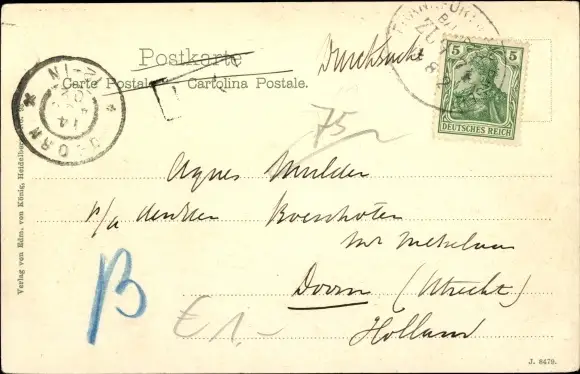 Postkarte
Carte Postale. Cartolina Postale.
Drucksache
5 5
DEUTSCHES REICH
DOORN
75
Agnes Mulder
p/a
Boeschoten
Doorn (Utrecht)
Holland
B
€ 1.-
Verlag von Edm. von König, Heidelberg
J. 8479.